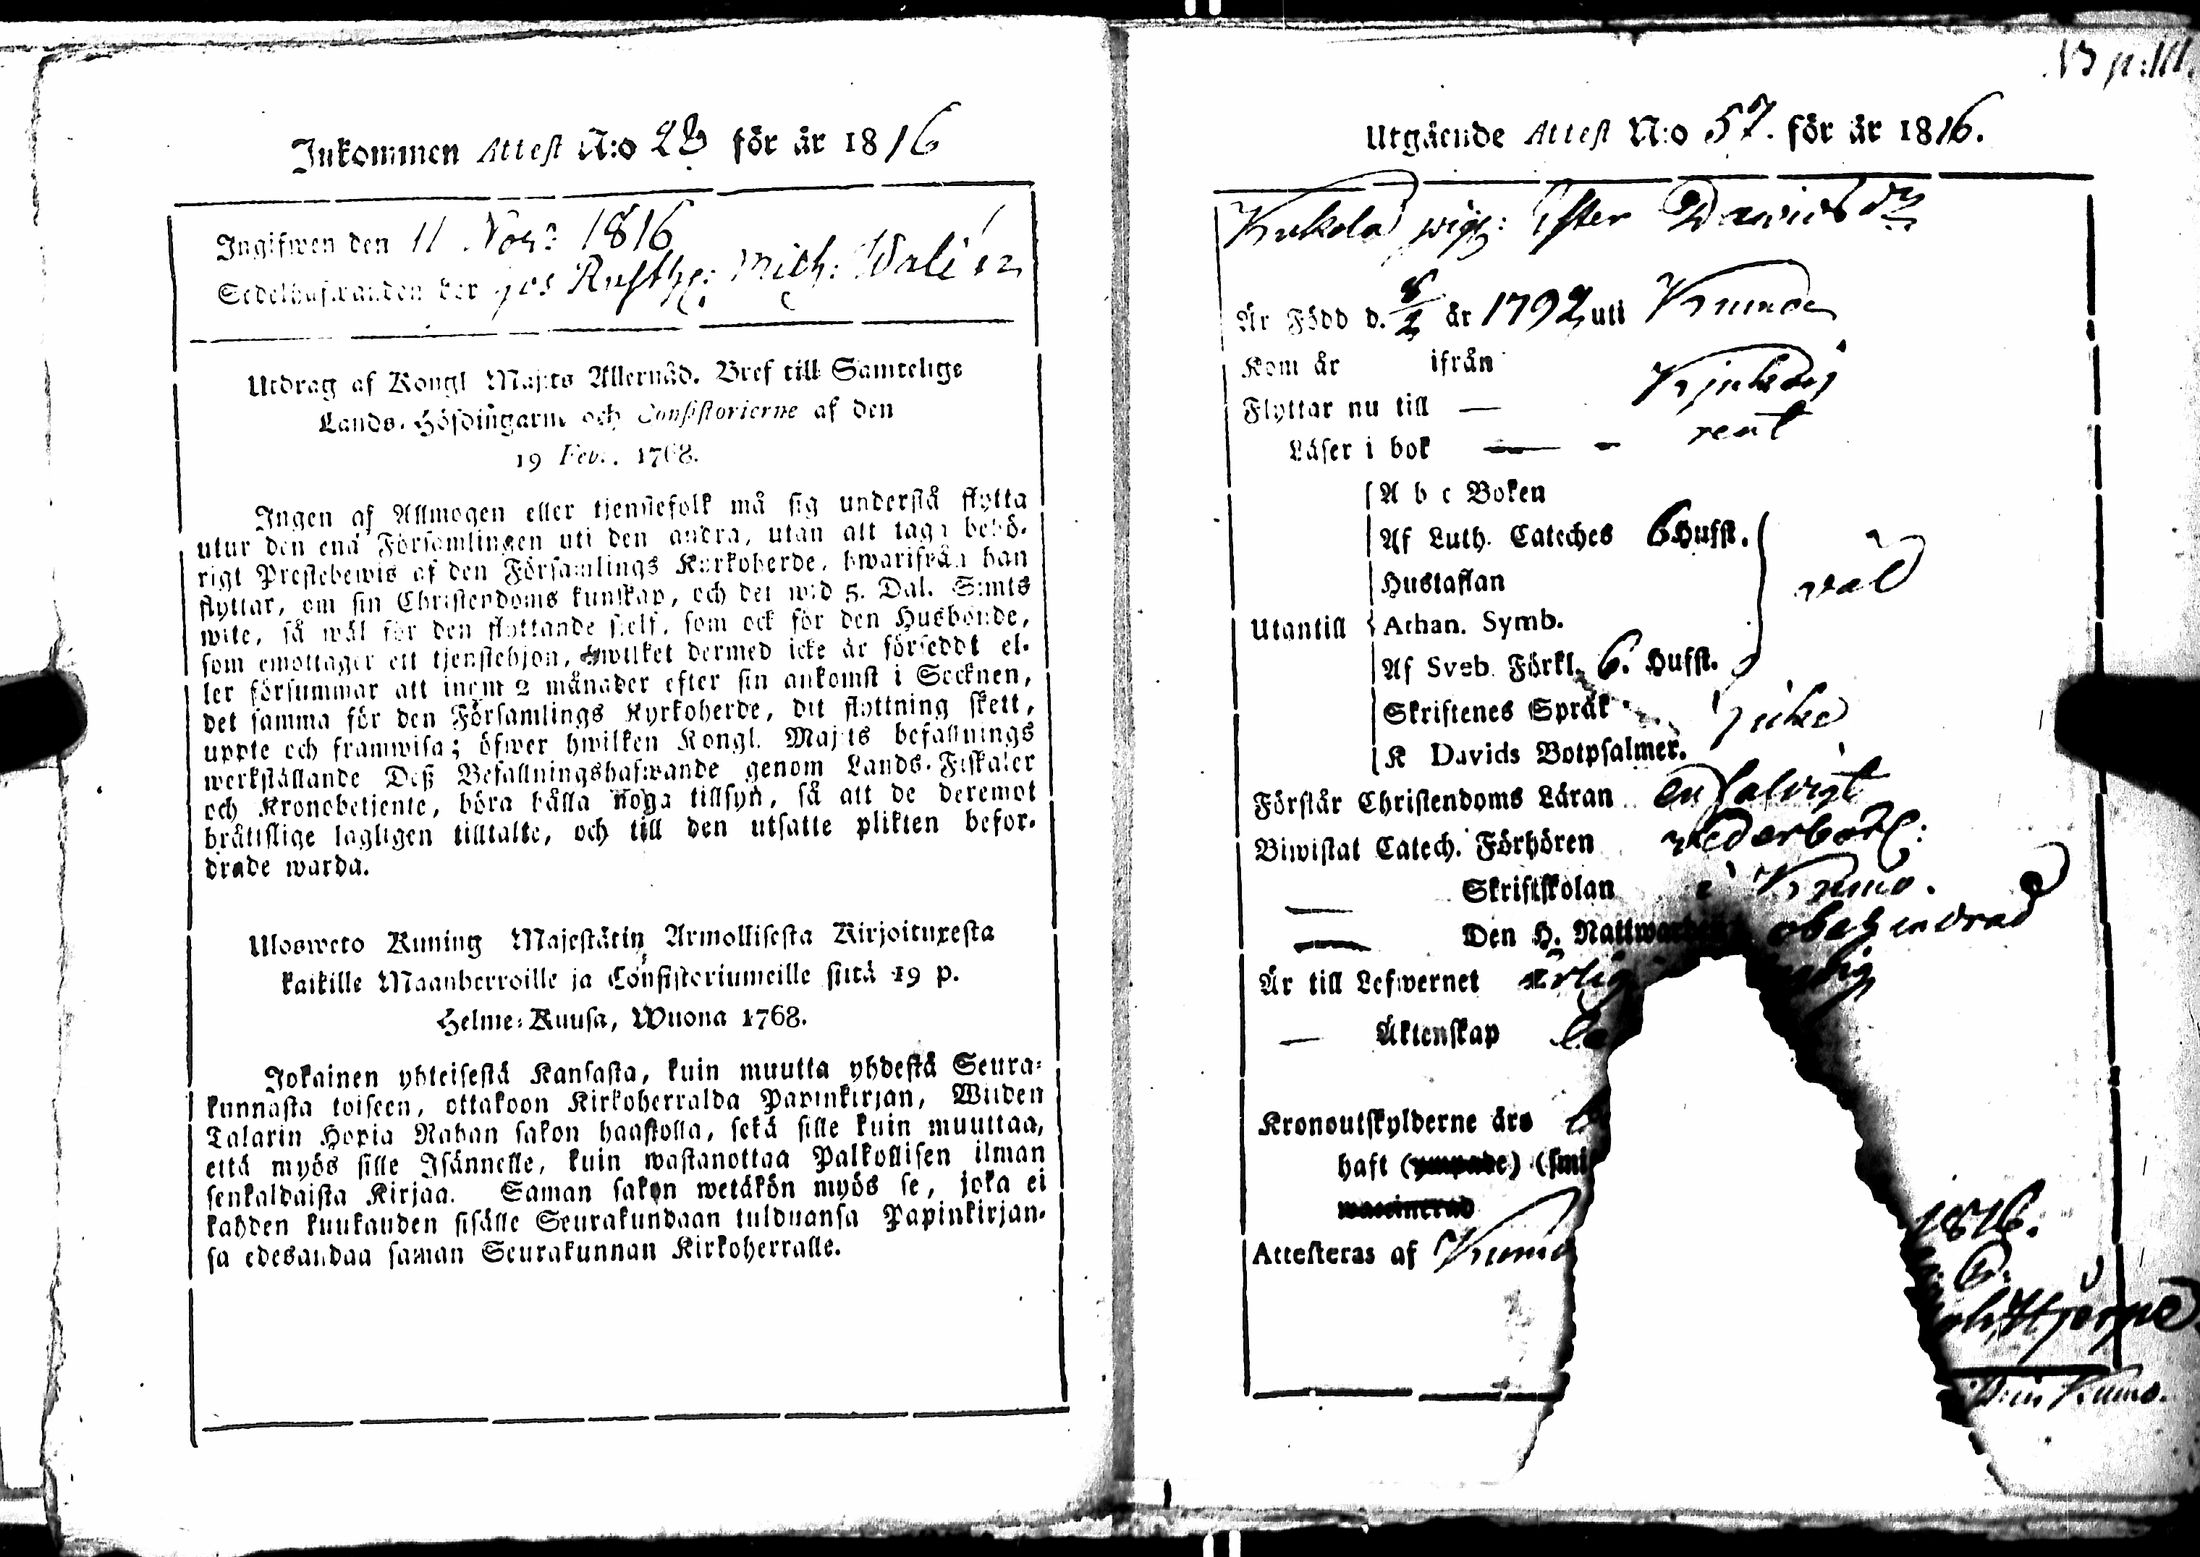 Inkommen Attest N:o 28 för år 1816
Ingifwen den 11 Nov: 1816
Sedelhafwanden bor hos Rusth: Mich: Walén
Utdrag af Kongl Maj:ts Allernåd. Bref till Samtelige
Lands-Höfdingarne och Consistorierne af den
19 Febr. 1768.
Ingen af Allmogen eller tjenstefolk må sig understå flytta
utur den ena Församlingen uti den andra, utan att taga behö-
rigt Prestebewis af den Församlings Kyrkoherde, hwarifrån han
flyttar, om sin Christendoms kunskap, och det wid 5. Dal. S:mts
wite, så wäl för den flyttande sjelf, som ock för den Husbonde,
som emottager ett tjenstehjon, hwilket dermed icke är försedt el-
ler försummar att inom 2 månader efter sin ankomst i Socknen,
det samma för den Församlings Kyrkoherde, dit flyttning skett,
uppte och framwisa; öfwer hwilken Kongl. Maj:ts befallnings
werkställande Deß Befallningshafwande genom Lands-Fiskaler
och Kronobetjente, böra hålla noga tillsyn, så att de deremot
bråttslige lagligen tilltalte, och till den utsatte plikten befor-
drade warda.
Ulosweto Kuning Majestätin Armollisesta Kirjoituxesta
kaikille Maanherroille ja Consistoriumeille siitä 19 p.
Helme-Kuusa, Wuona 1768.
Jokainen yhteisestä Kansasta, kuin muutta yhdestä Seura-
kunnasta toiseen, ottakoon Kirkoherralda Papinkirjan, Wiiden
Talarin Hopia Rahan sakon haastolla, sekä sille kuin muuttaa,
että myös sille Isännelle, kuin wastanottaa Palkollisen ilman
senkaldaista Kirjaa. Saman sakon wetäkön myös se, joka ei
kahden kuukauden sisälle Seurakundaan tulduansa Papinkirjan-
sa edesandaa saman Seurakunnan Kirkoherralle.
Utgående Attest N:o 57. för år 1816.
Kukola pig: Ester Davidsdr
Är Född d. 8/2 år 1792 uti Kumo
Kom år ifrån
Flyttar nu till — Kjulo
Läser i bok — - rent
A b c Boken
Af Luth. Cateches 6 Hufst.
Hustaflan
Utantill Athan. Symb. väl
Af Sveb. Förkl. 6. Hufst.
Skriftenes Språk
K Davids Botpsalmer. icke
Förstår Christendoms Läran enfalvigt
Biwistat Catech. Förhören vederbörl:
— Skriftskolan i Kumo.
— Den H. Nattwarden obehindrad
Är till Lefwernet ärlig
— Äktenskap
Kronoutskylderne års
haft (ympade) (smi
waccinerad
Attesteras af Kumo
1816.
Hjerpe